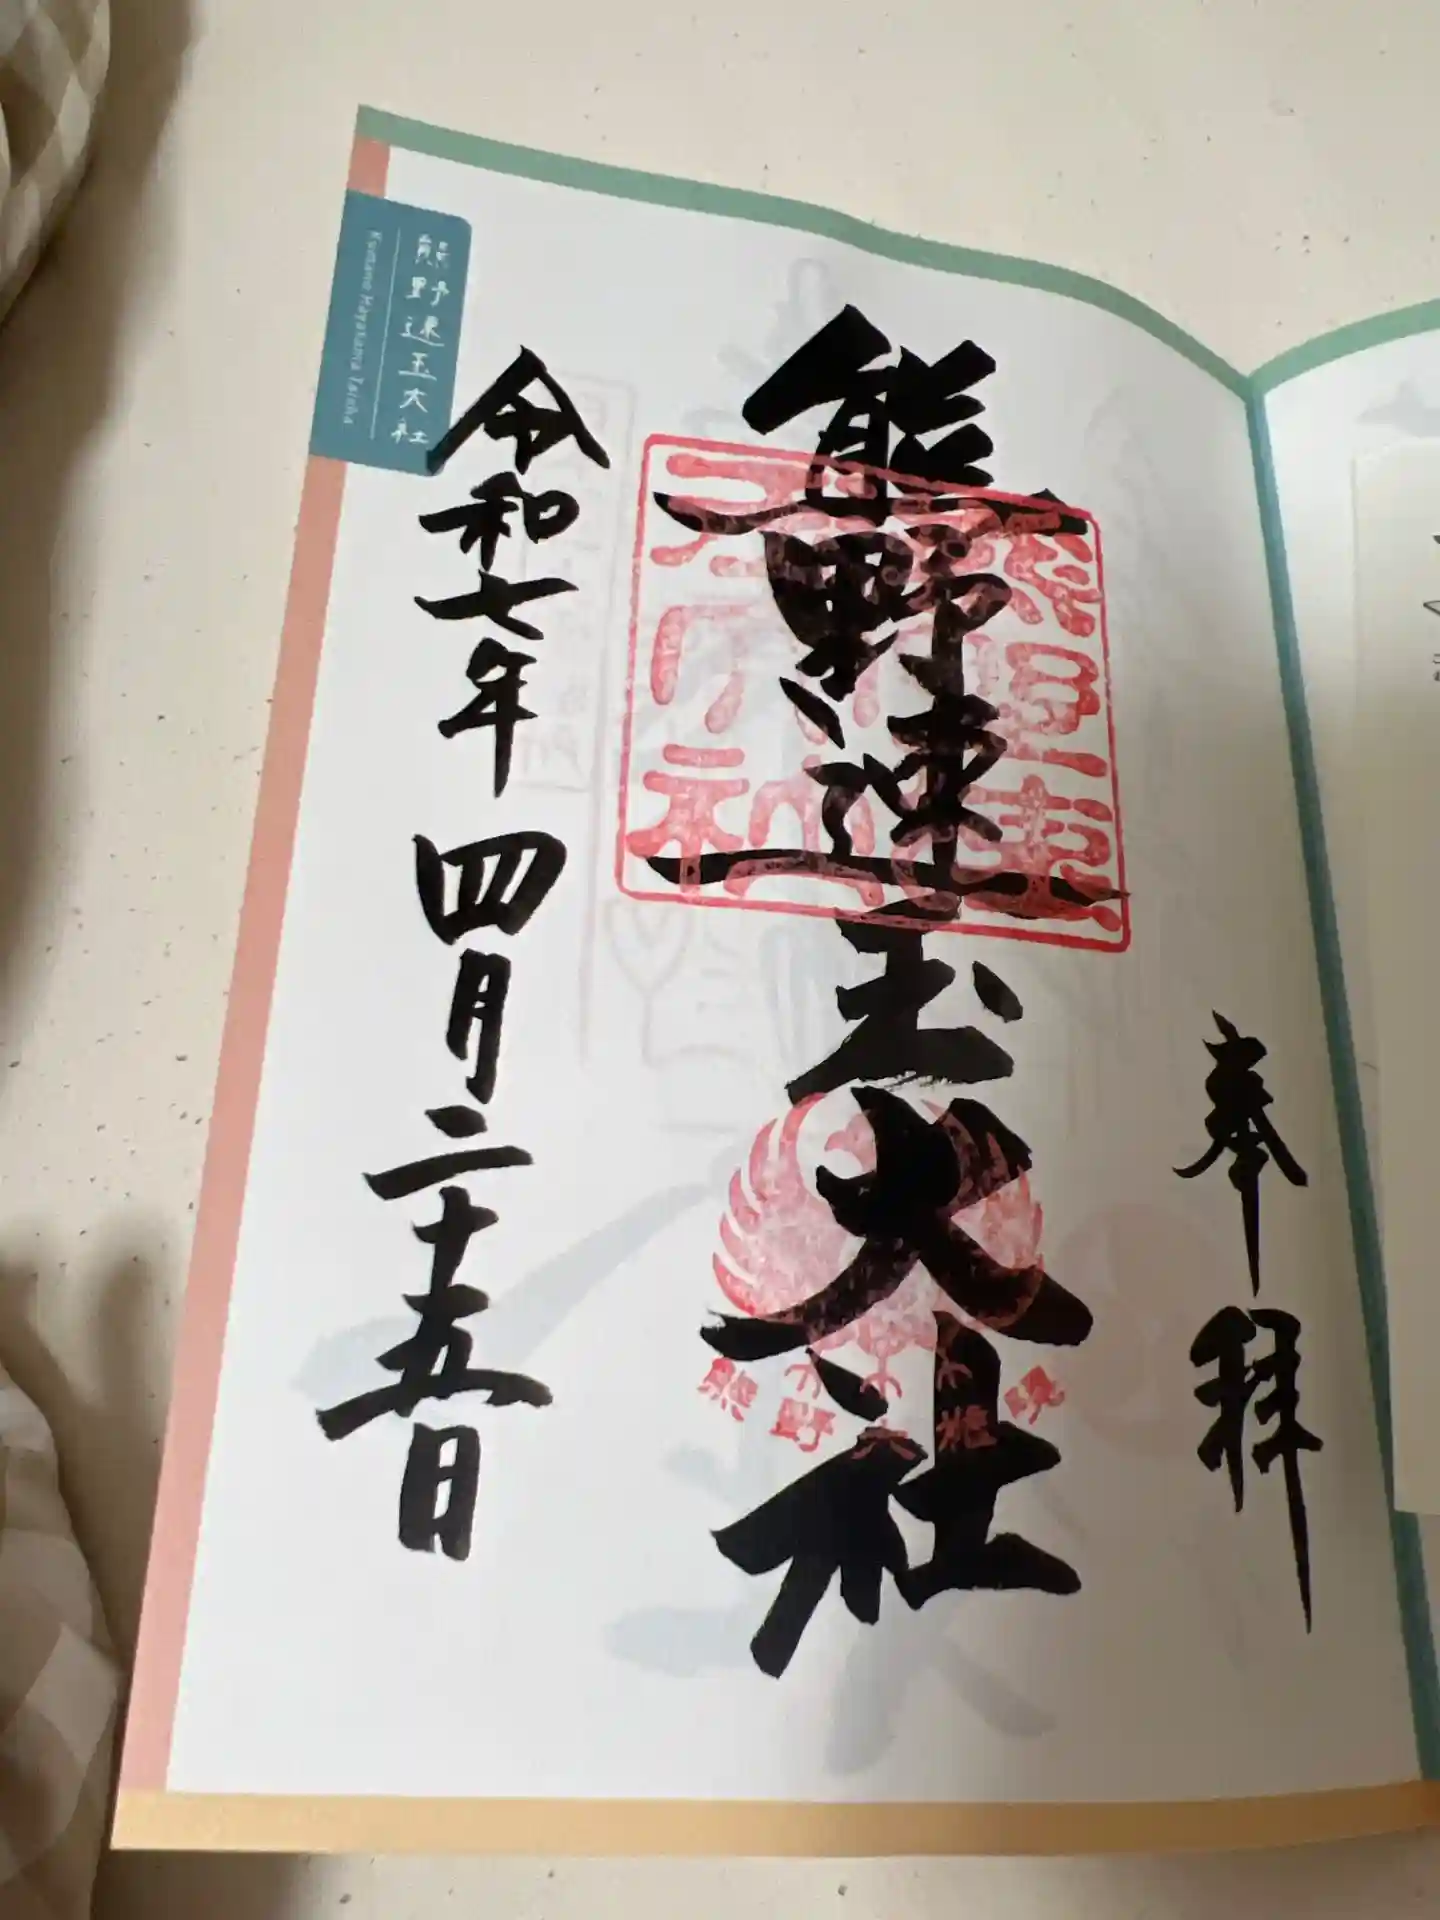 奉拝
熊野速玉大社
熊野大権現
令和七年 四月二十五日
熊野速玉大社
Kumano Hayatama Taisha